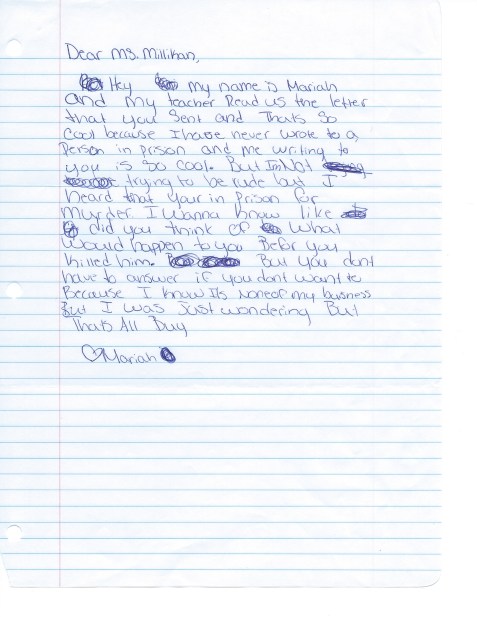 Dear Ms. Millikan,
Hey my name is Mariah
and my teacher Read us the letter
that you sent and Thats so
cool because I have never wrote to a
Person in prison and me writing to
you is so cool. But Im Not
trying to be rude but I
heard that your in Prison for
murder. I wanna know like
did you think of what
would happen to you Befor you
killed him. But you dont
have to answer if you dont want to
Because I know Its none of my business
But I was just wondering But
Thats All Buy
♡Mariah